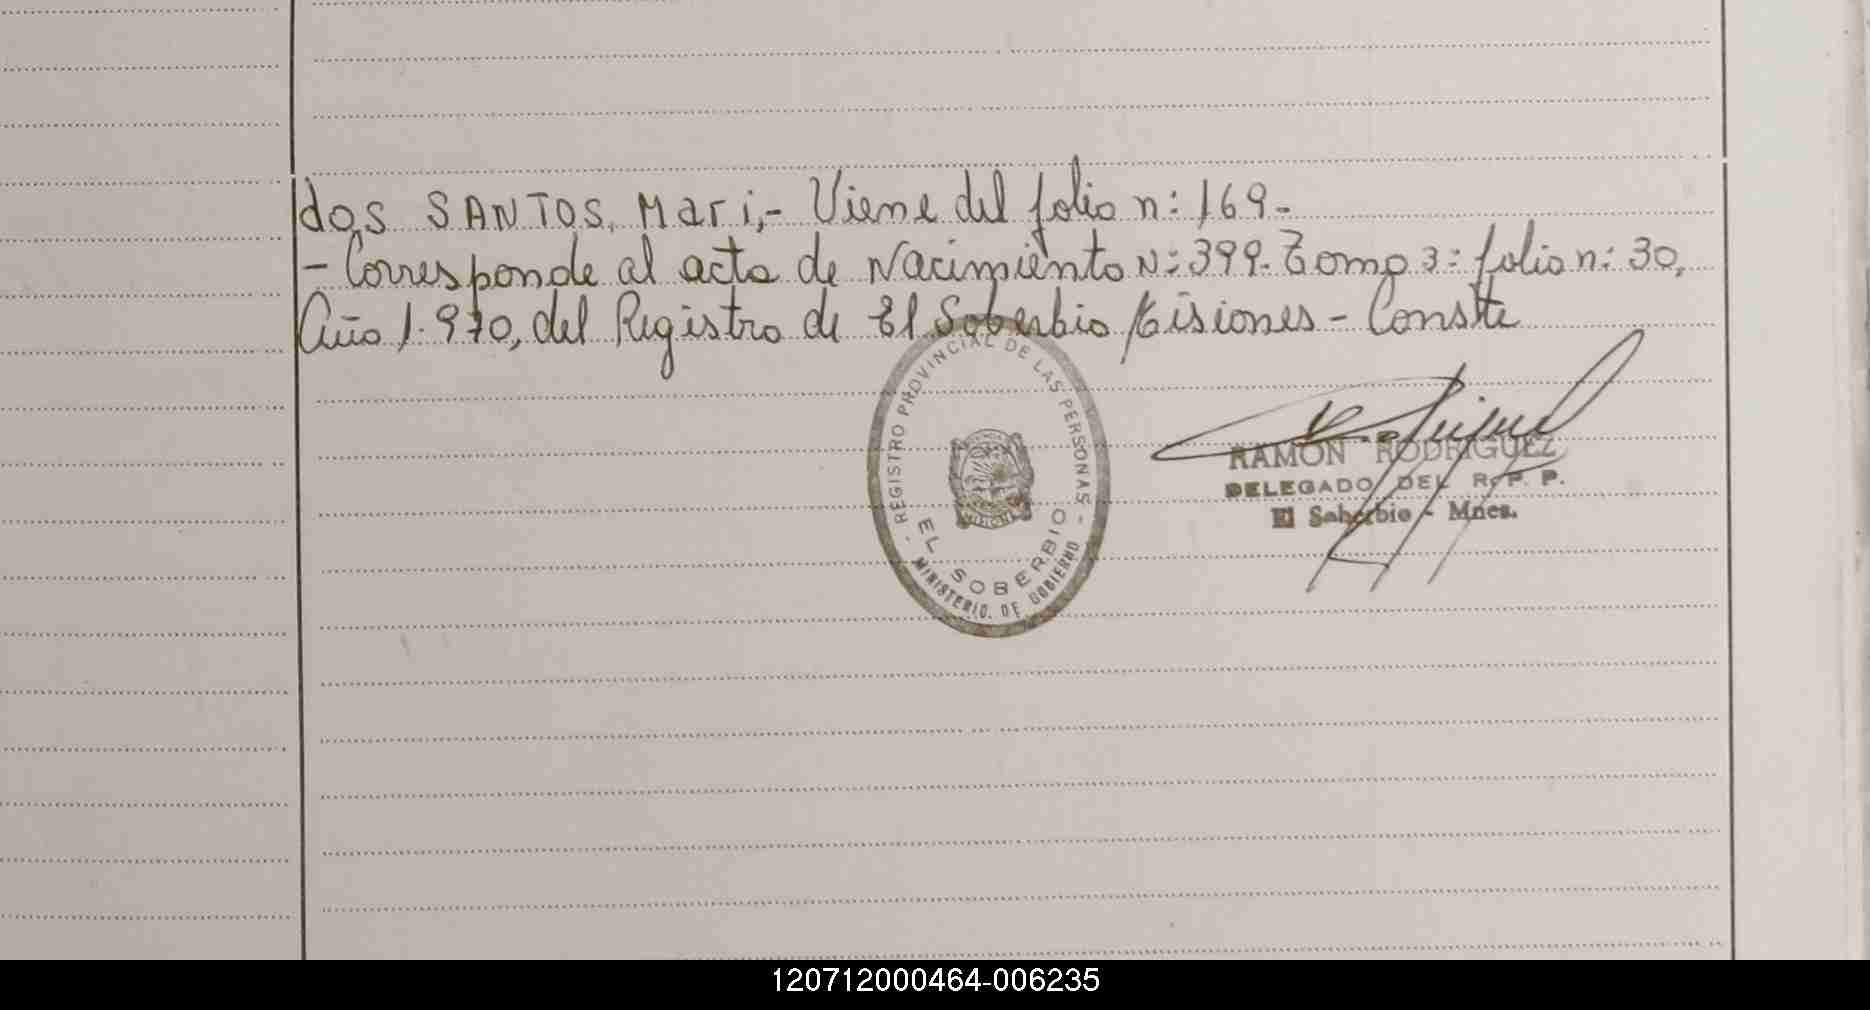 dos SANTOS, Mari,- Viene del folio n: 169-
- Corresponde al acta de Nacimiento N: 399. Tomo 3: folio n: 30,
Año 1.970, del Registro de El Soberbio Misiones - Conste
- REGISTRO PROVINCIAL DE LAS PERSONAS -
MISIONES
EL SOBERBIO
MINISTERIO DE GOBIERNO
RAMON RODRIGUEZ
DELEGADO DEL R. P. P.
El Soberbio - Mnes.
120712000464-006235